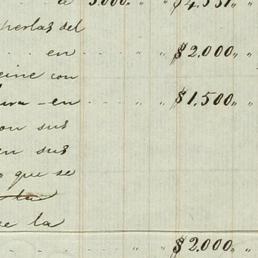 de 3.000.. " " $ 4.551.. "
perlas del
en $ 2.000.. " "
peine con
ura - en $ 1.500.. " "
con sus
en sus
o que se
se la
$ 2.000.. " "